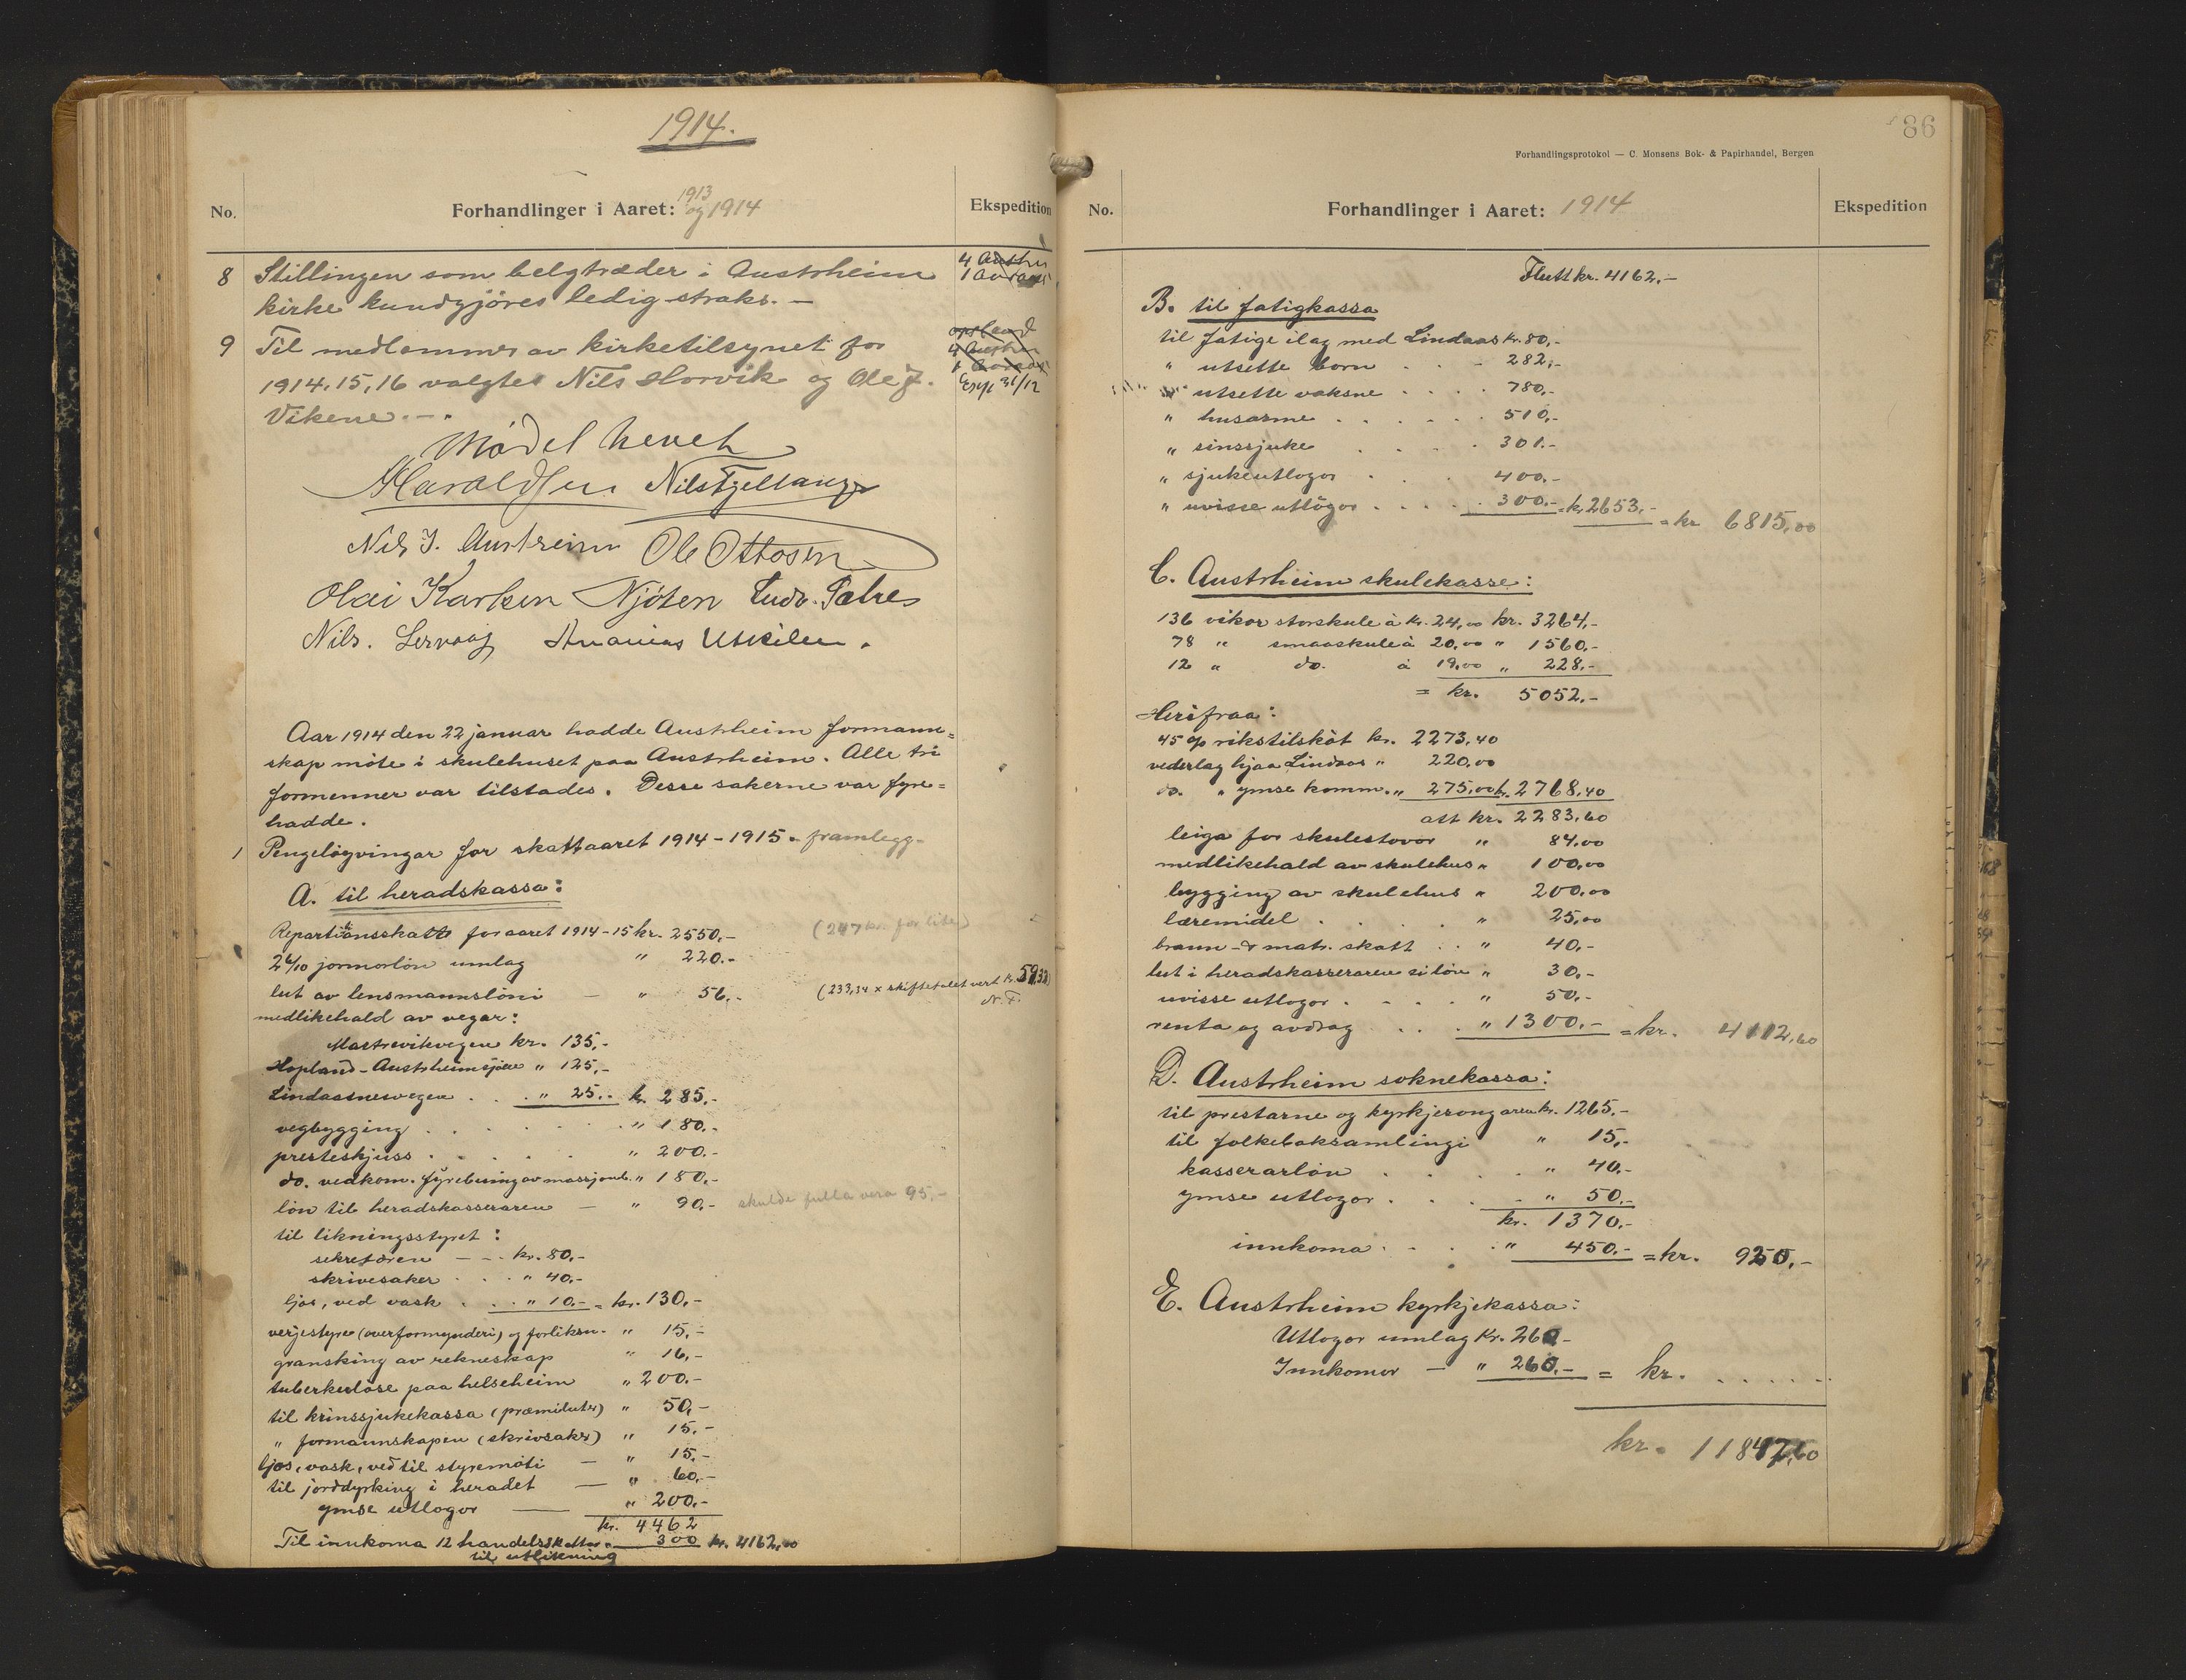 1914.
No. Forhandlinger i Aaret: 1913 og 1914 Ekspedition
8 Stillingen som belgtræder i Austrheim
kirke kundgjöres ledig straks. —
9 Til medlemmer av kirketilsynet for
1914, 15, 16 valgtes Nils Horvik og Ole J.
Vikene. — Exp 31/12
Mödet hevet
Haraldsen Nils Fjellanger
Nils J. Austreim Ole Ottosen
Olai Karlsen Njöten Ludv. Sætre
Nils. Lervaag Ananias Utkilen.
Aar 1914 den 22 januar hadde Austrheim formann=
skap möte i skulehuset paa Austrheim. Alle tri
formenner var tilstades. Desse sakerne var fyre=
hadde.
1 Pengelöyvingar for skattaaret 1914-1915. framlegg.
A. til heradskassa:
Repartitionsskatt for aaret 1914-15 kr. 2550,- (247 kr. for lite)
2 6/10 jormorlön umlag " 220.-
lut av lensmannslöni — " 56,- (233,34 x skiftetalet vert kr. 59,33)
N. F.
medlikehald av vegar:
Mastrevikvegen kr. 135,-
Hopland-Austrheimsjöen " 125,-
Lindaasnesvegen . . . " 25.- kr. 285,-
vegbygging . . . . . " 180.-
presteskjuss . . . . " 200.-
do. vedkom. fyrebuing av massjonb. " 180,-
lön til heradskasseraren — " 90,- skulde fulla vera 95,-
til likningsstyret:
sekretæren — - kr. 80,-
skrivesaker . . . " 40,-
ljos, ved vask . . . " 10,- = kr. 130,-
verjestyre (overformynderi) og forliksn. " 15,-
gransking av rekneskap " 16,-
tuberkulöse paa helseheim " 200.-
til krinssjukekassa (præmilutr) " 50,-
" formannskapen (skrivsaker) " 15.-
ljos, vask, ved til styremöti — " 15,-
til jorddyrking i heradet — " 60,-
ymse utlogor — " 200,-
kr. 4462
Til innkoma 12 handelsskattar " 300 kr. 4162,00
til utlikning
86
Forhandlingsprotokol — C. Monsens Bok- & Papirhandel, Bergen
No. Forhandlinger i Aaret: 1914 Ekspedition
Flutt kr. 4162,-
B. til fatigkassa
til fatige ilag med Lindaas kr. 80,-
" utsette born . . - 282,-
" utsette vaksne . . . . 780,-
" husarme . . . . . 510,-
" sinssjuke . . . . 301.-
" sjukeutlogor . . . 400,-
" uvisse utlögor . . . . 300,- = kr. 2653,- = kr 6815,00
C. Austrheim skulekasse:
136 vikor storskule à kr. 24,00 kr. 3264,-
78 " smaaskule à 20,00 " 1560,-
12 " do. à 19,00 " 228,-
= kr. 5052,-
Herifraa:
45 % rikstilsköt kr. 2273,40
vederlag hjaa Lindaas " 220,00
do. " ymse komm. " 275,00 kr. 2768,40
att kr. 2283,60
leiga for skulestovor " 84,00
medlikehald av skulehus " 100,00
bygging av skulehus " 200,00
læremidel . . . . " 25,00
brann- & matr. skatt . . " 40,-
lut i heradskasseraren si lön " 30,-
uvisse utlogor . - - . " 50,-
renta og avdrag . . . " 1300.- = kr. 4112,60
D. Austrheim soknekassa:
til prestarne og kyrkjesongaren kr. 1265,-
til folkeboksamlingi " 15,-
kasserarlön . . . . " 40,-
ymse utlogor . . . - " 50,-
kr. 1370,-
innkoma . . . . " 450,- = kr. 920,-
E. Austrheim kyrkjekassa:
Utlogor umlag kr. 260-
Innkomor — " 260,- = kr. . . . . .
kr. 11847,60